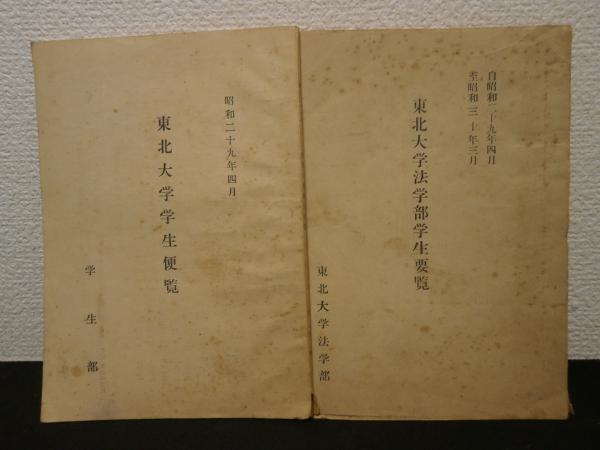 自昭和二十九年四月
至昭和三十年三月
東北大学法学部学生要覧
東北大学法学部
昭和二十九年四月
東北大学学生便覧
学生部